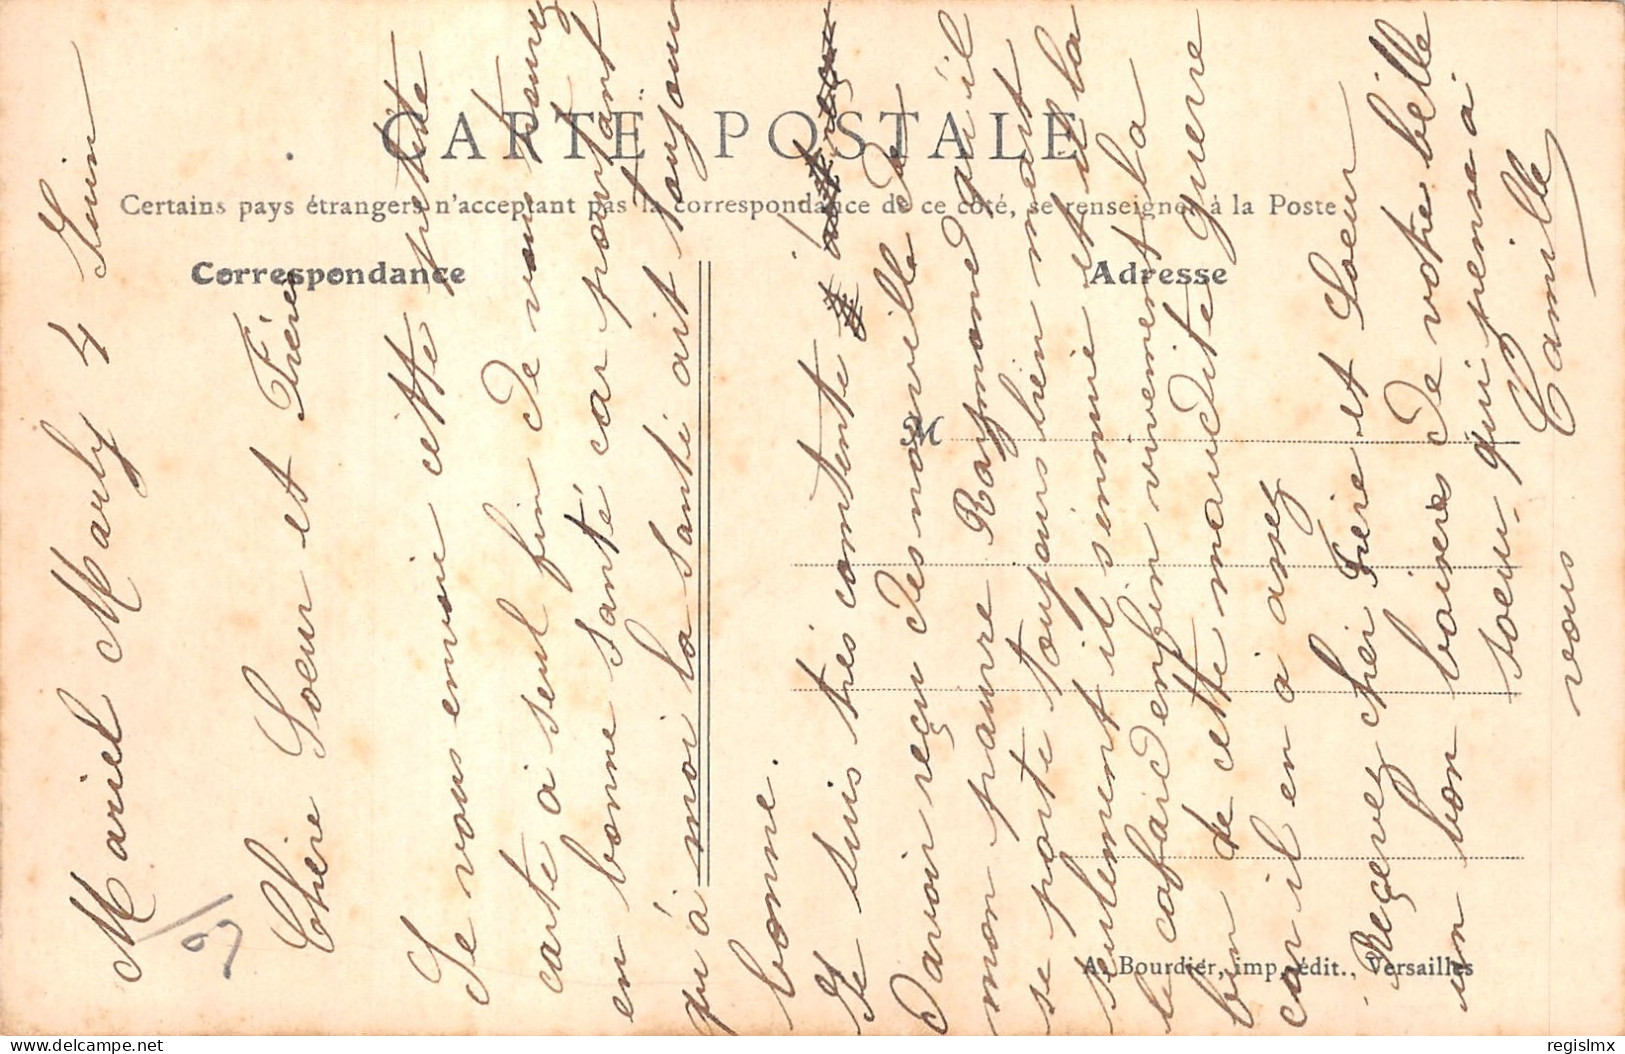 CARTE POSTALE
Certains pays étrangers n'acceptant pas la correspondance de ce côté, se renseigner à la Poste
Correspondance
Adresse
M
A. Bourdier, imp. édit., Versailles
Mariel Marly 4 Juin
Chère Soeur et Frère
Je vous envoie cette petite
carte à seul fin de vous
en bonne santé car pourtant
qu'à moi la santé ait toujour
bonne.
Je suis très contente
d'avoir reçu des nouvelle de
mon pauvre Raymond qu'il
se porte toujours bien mait
seulement il s'ennuie et il a
le cafard enfin vivement la
fin de cette maudite guerre
car il en a assez
Reçevez cher Frère et Soeur
un bon baisers de votre belle
soeur qui pense à
vous Camille
delcampe.net
regislmx